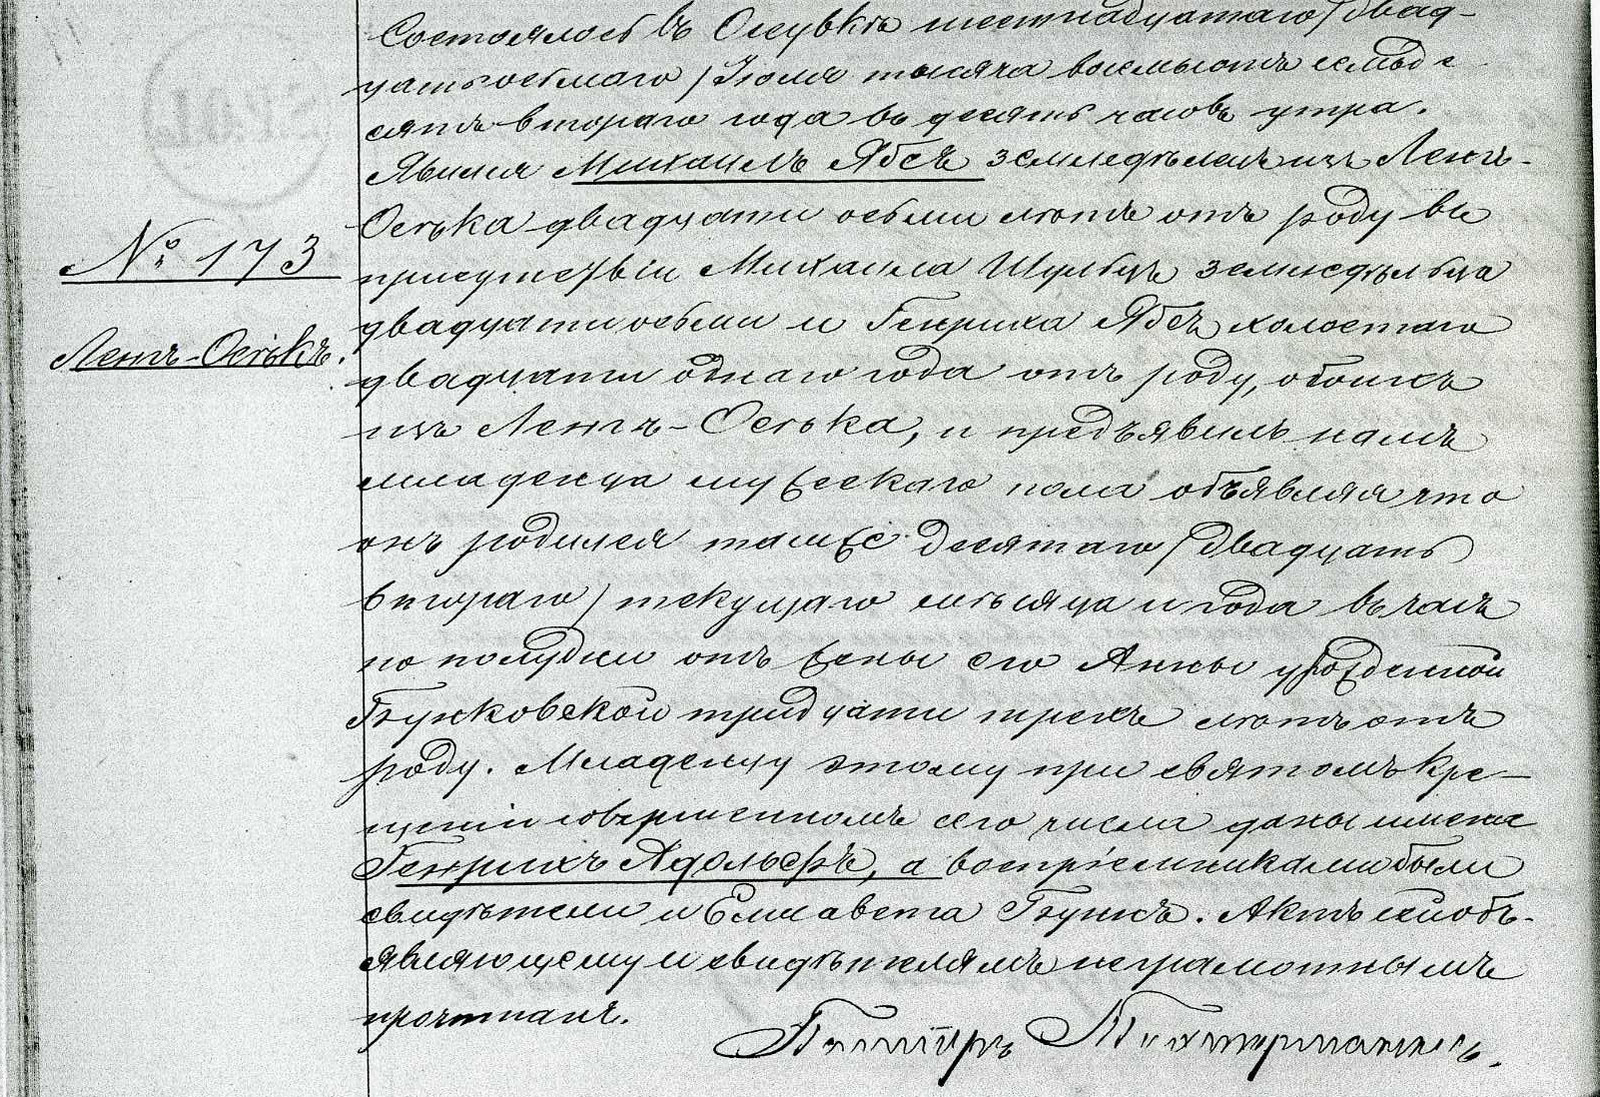 Состоялось въ Осувкѣ шестнадцатаго /двад-
цать осьмого/ Іюля тысяча восемьсотъ семьде-
сятъ втораго года въ десять часовъ утра.
Явился Михаилъ Ябсъ земледѣлецъ изъ Ленгъ-
Осѣка двадцати осьми лѣтъ отъ роду въ
№ 173
присутствіи Михаила Шульцъ земледѣльца
двадцати осьми и Генриха Ябсъ холостаго
Ленгъ-Осѣкъ.
двадцати одного года отъ роду, обоихъ
изъ Ленгъ-Осѣка, и предъявилъ намъ
младенца мужескаго пола объявляя что
онъ родился тамже десятаго /двадцать
втораго/ текущаго мѣсяца и года въ часъ
по полудни отъ жены его Анны урожденной
тридцати трехъ лѣтъ отъ
роду. Младенцу этому при святомъ кре-
щеніи совершенномъ сего числа даны имена
Генрихъ Адольфъ, а воспріемниками были
свидѣтели и Елисавета. Актъ сей объ-
являющему и свидѣтелямъ неграмотнымъ
прочитанъ.
Пасторъ